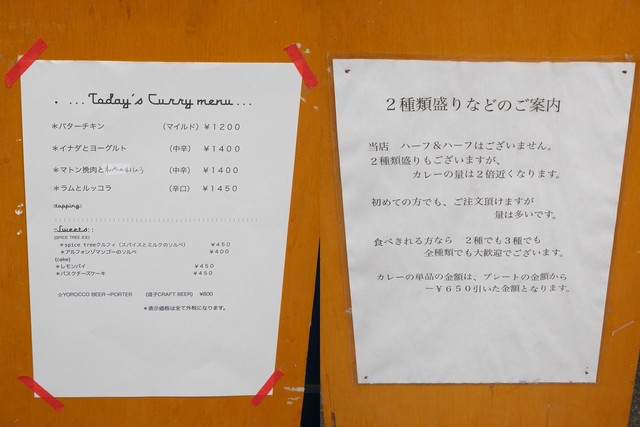 . ...Today's Curry menu...
＊バターチキン （マイルド）￥１２００
＊イナダとヨーグルト （中辛） ￥１４００
＊マトン挽肉と （中辛） ￥１４００
＊ラムとルッコラ （辛口） ￥１４５０
topping:
:Sweets::
(SPICE TREE ICE)
＊spice treeクルフィ（スパイスとミルクのソルベ） ￥４５０
＊アルフォンゾマンゴーのソルベ ￥４００
(cake)
＊レモンパイ ￥４５０
＊バスクチーズケーキ ￥４５０
☆YOROCCO BEER→PORTER (逗子CRAFT BEER) ￥800
＊表示価格は全て外税になります。
２種類盛りなどのご案内
当店 ハーフ＆ハーフはございません。
２種類盛りもございますが、
カレーの量は２倍近くなります。
初めての方でも、ご注文頂けますが
量は多いです。
食べきれる方なら ２種でも３種でも
全種類でも大歓迎でございます。
カレーの単品の金額は、プレートの金額から
－￥６５０引いた金額となります。